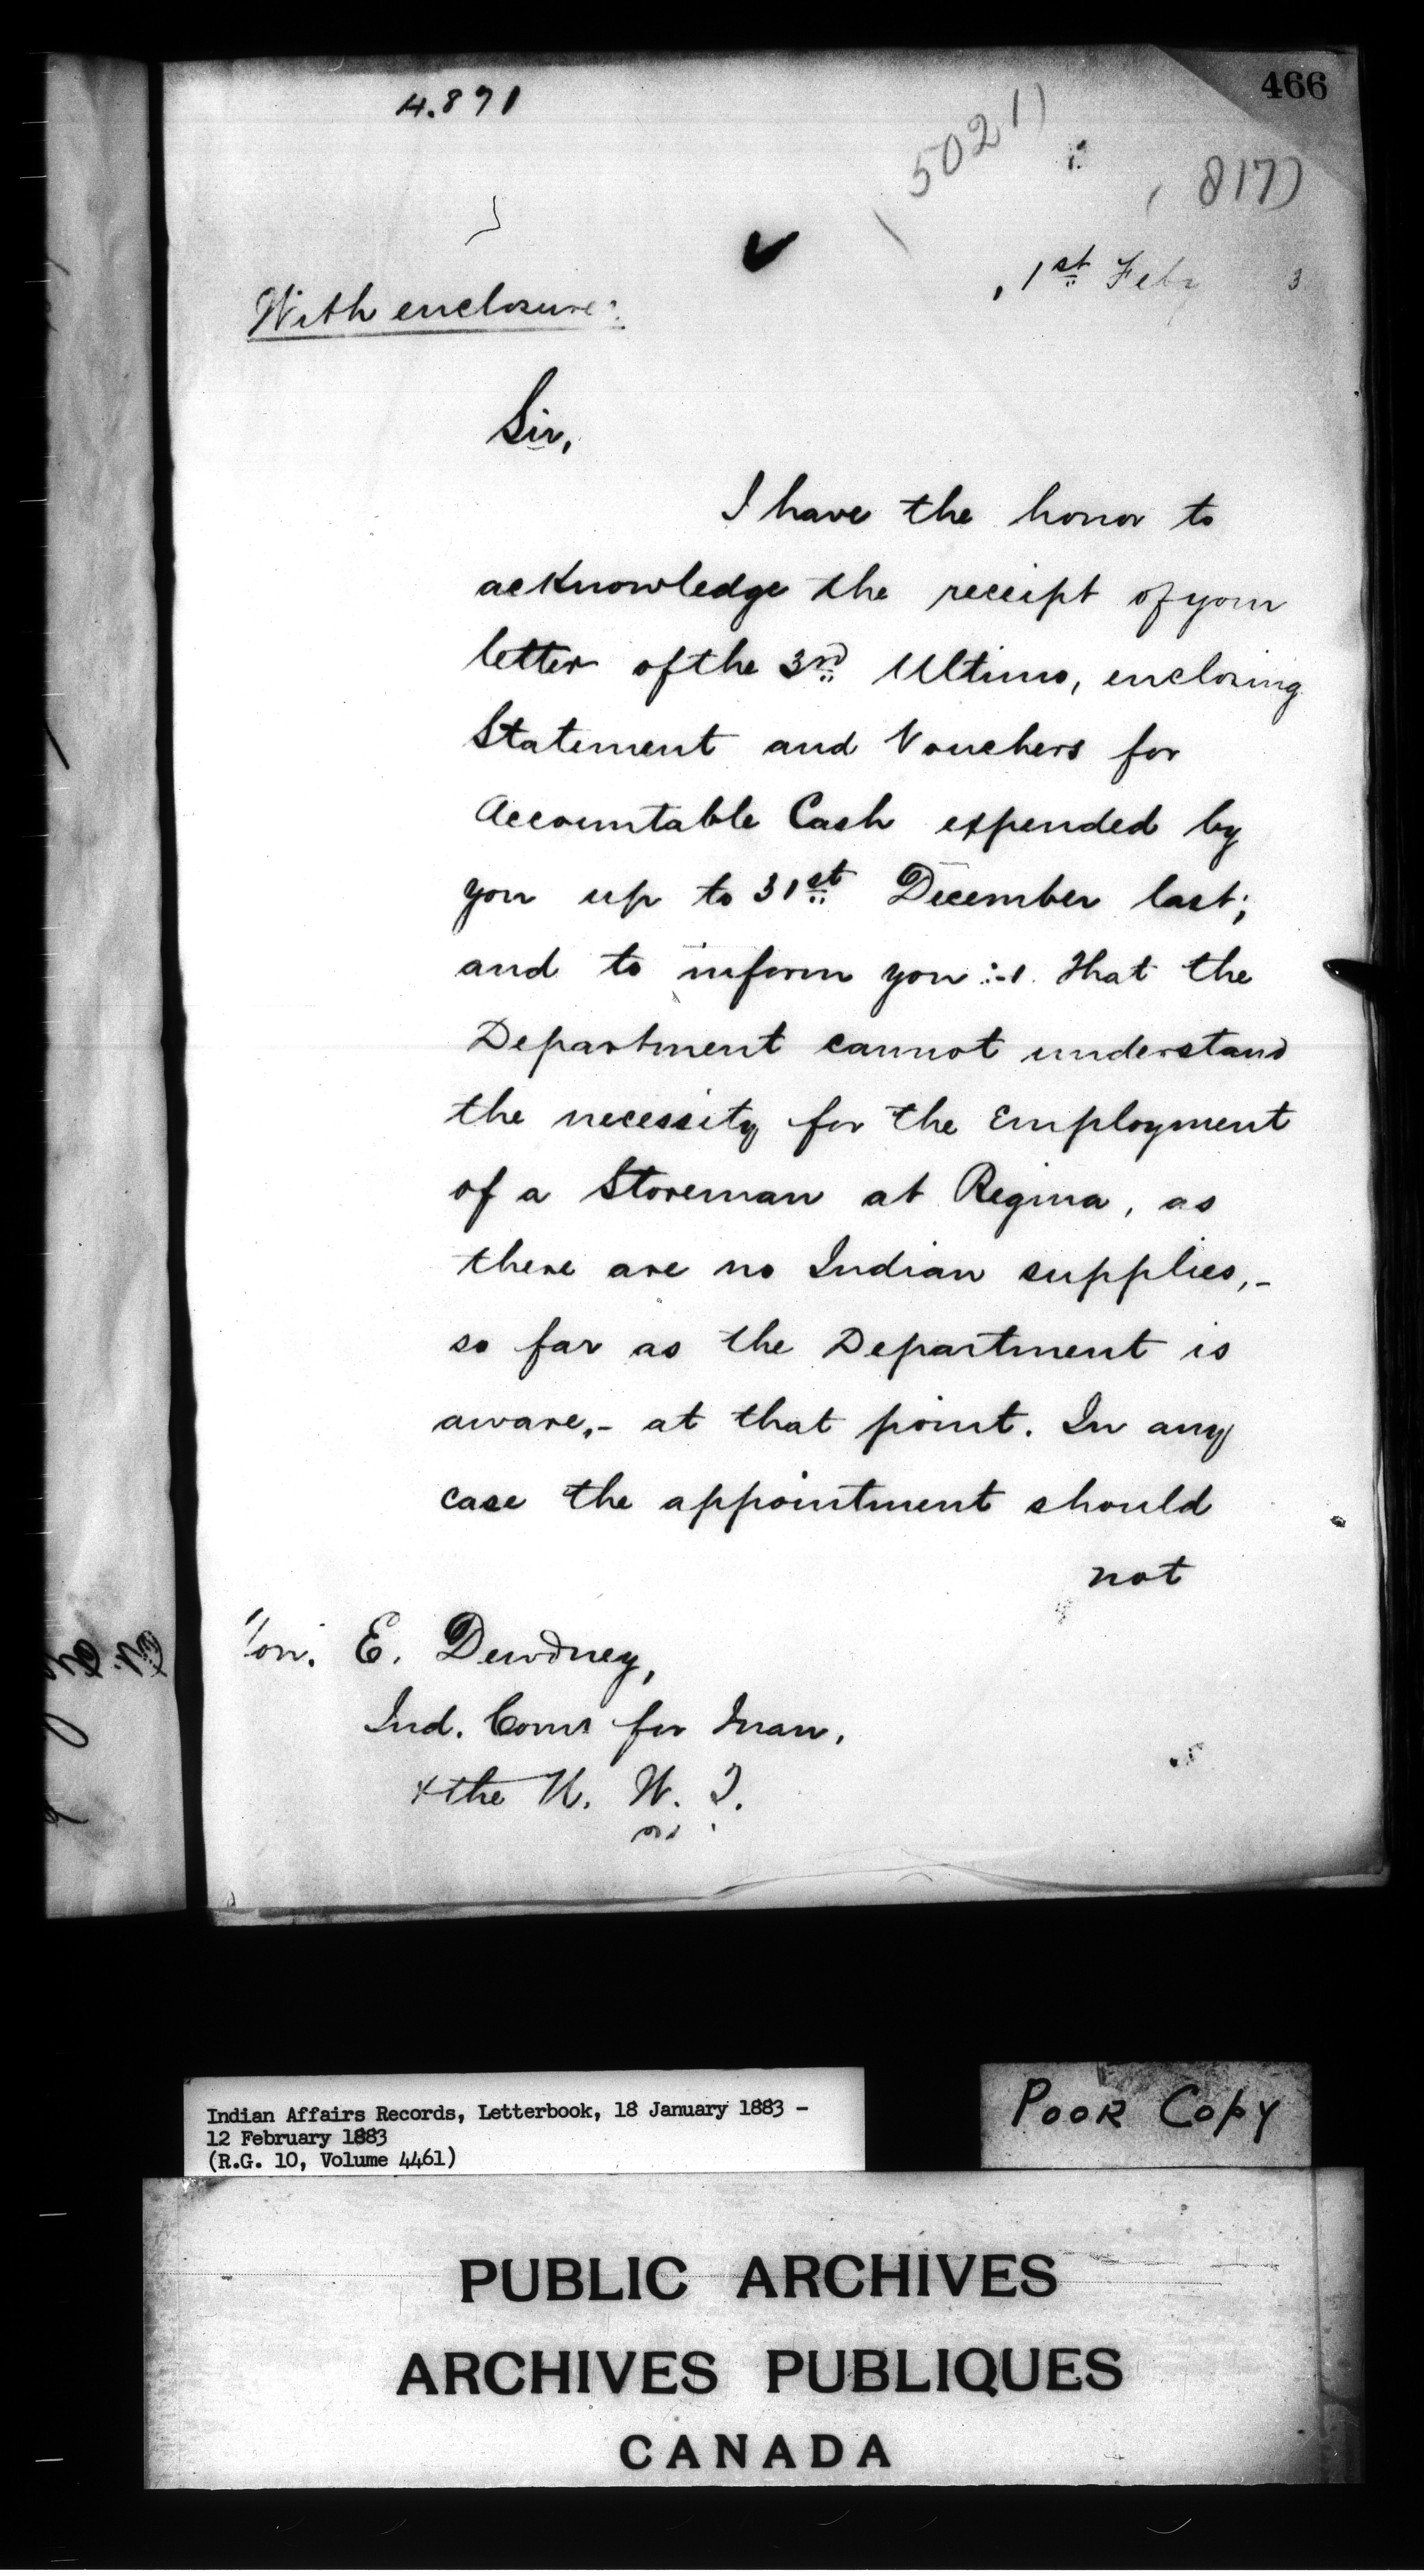 466
4.891
(5021)
817)
1st Feby 3
With enclosure:
Sir,
I have the honor to
acknowledge the receipt of your
letter of the 3rd Ultimo, enclosing
Statement and Vouchers for
Accountable Cash expended by
you up to 31st December last;
and to inform you :-1. That the
Department cannot understand
the necessity for the Employment
of a Storeman at Regina, as
there are no Indian supplies,-
so far as the Department is
aware,- at that point. In any
case the appointment should
not
on. E. Dewdney,
Ind. Comr for Man.
& the N. W. T.
Indian Affairs Records, Letterbook, 18 January 1883 -
12 February 1883
(R.G. 10, Volume 4461)
POOR COPY
PUBLIC ARCHIVES
ARCHIVES PUBLIQUES
CANADA